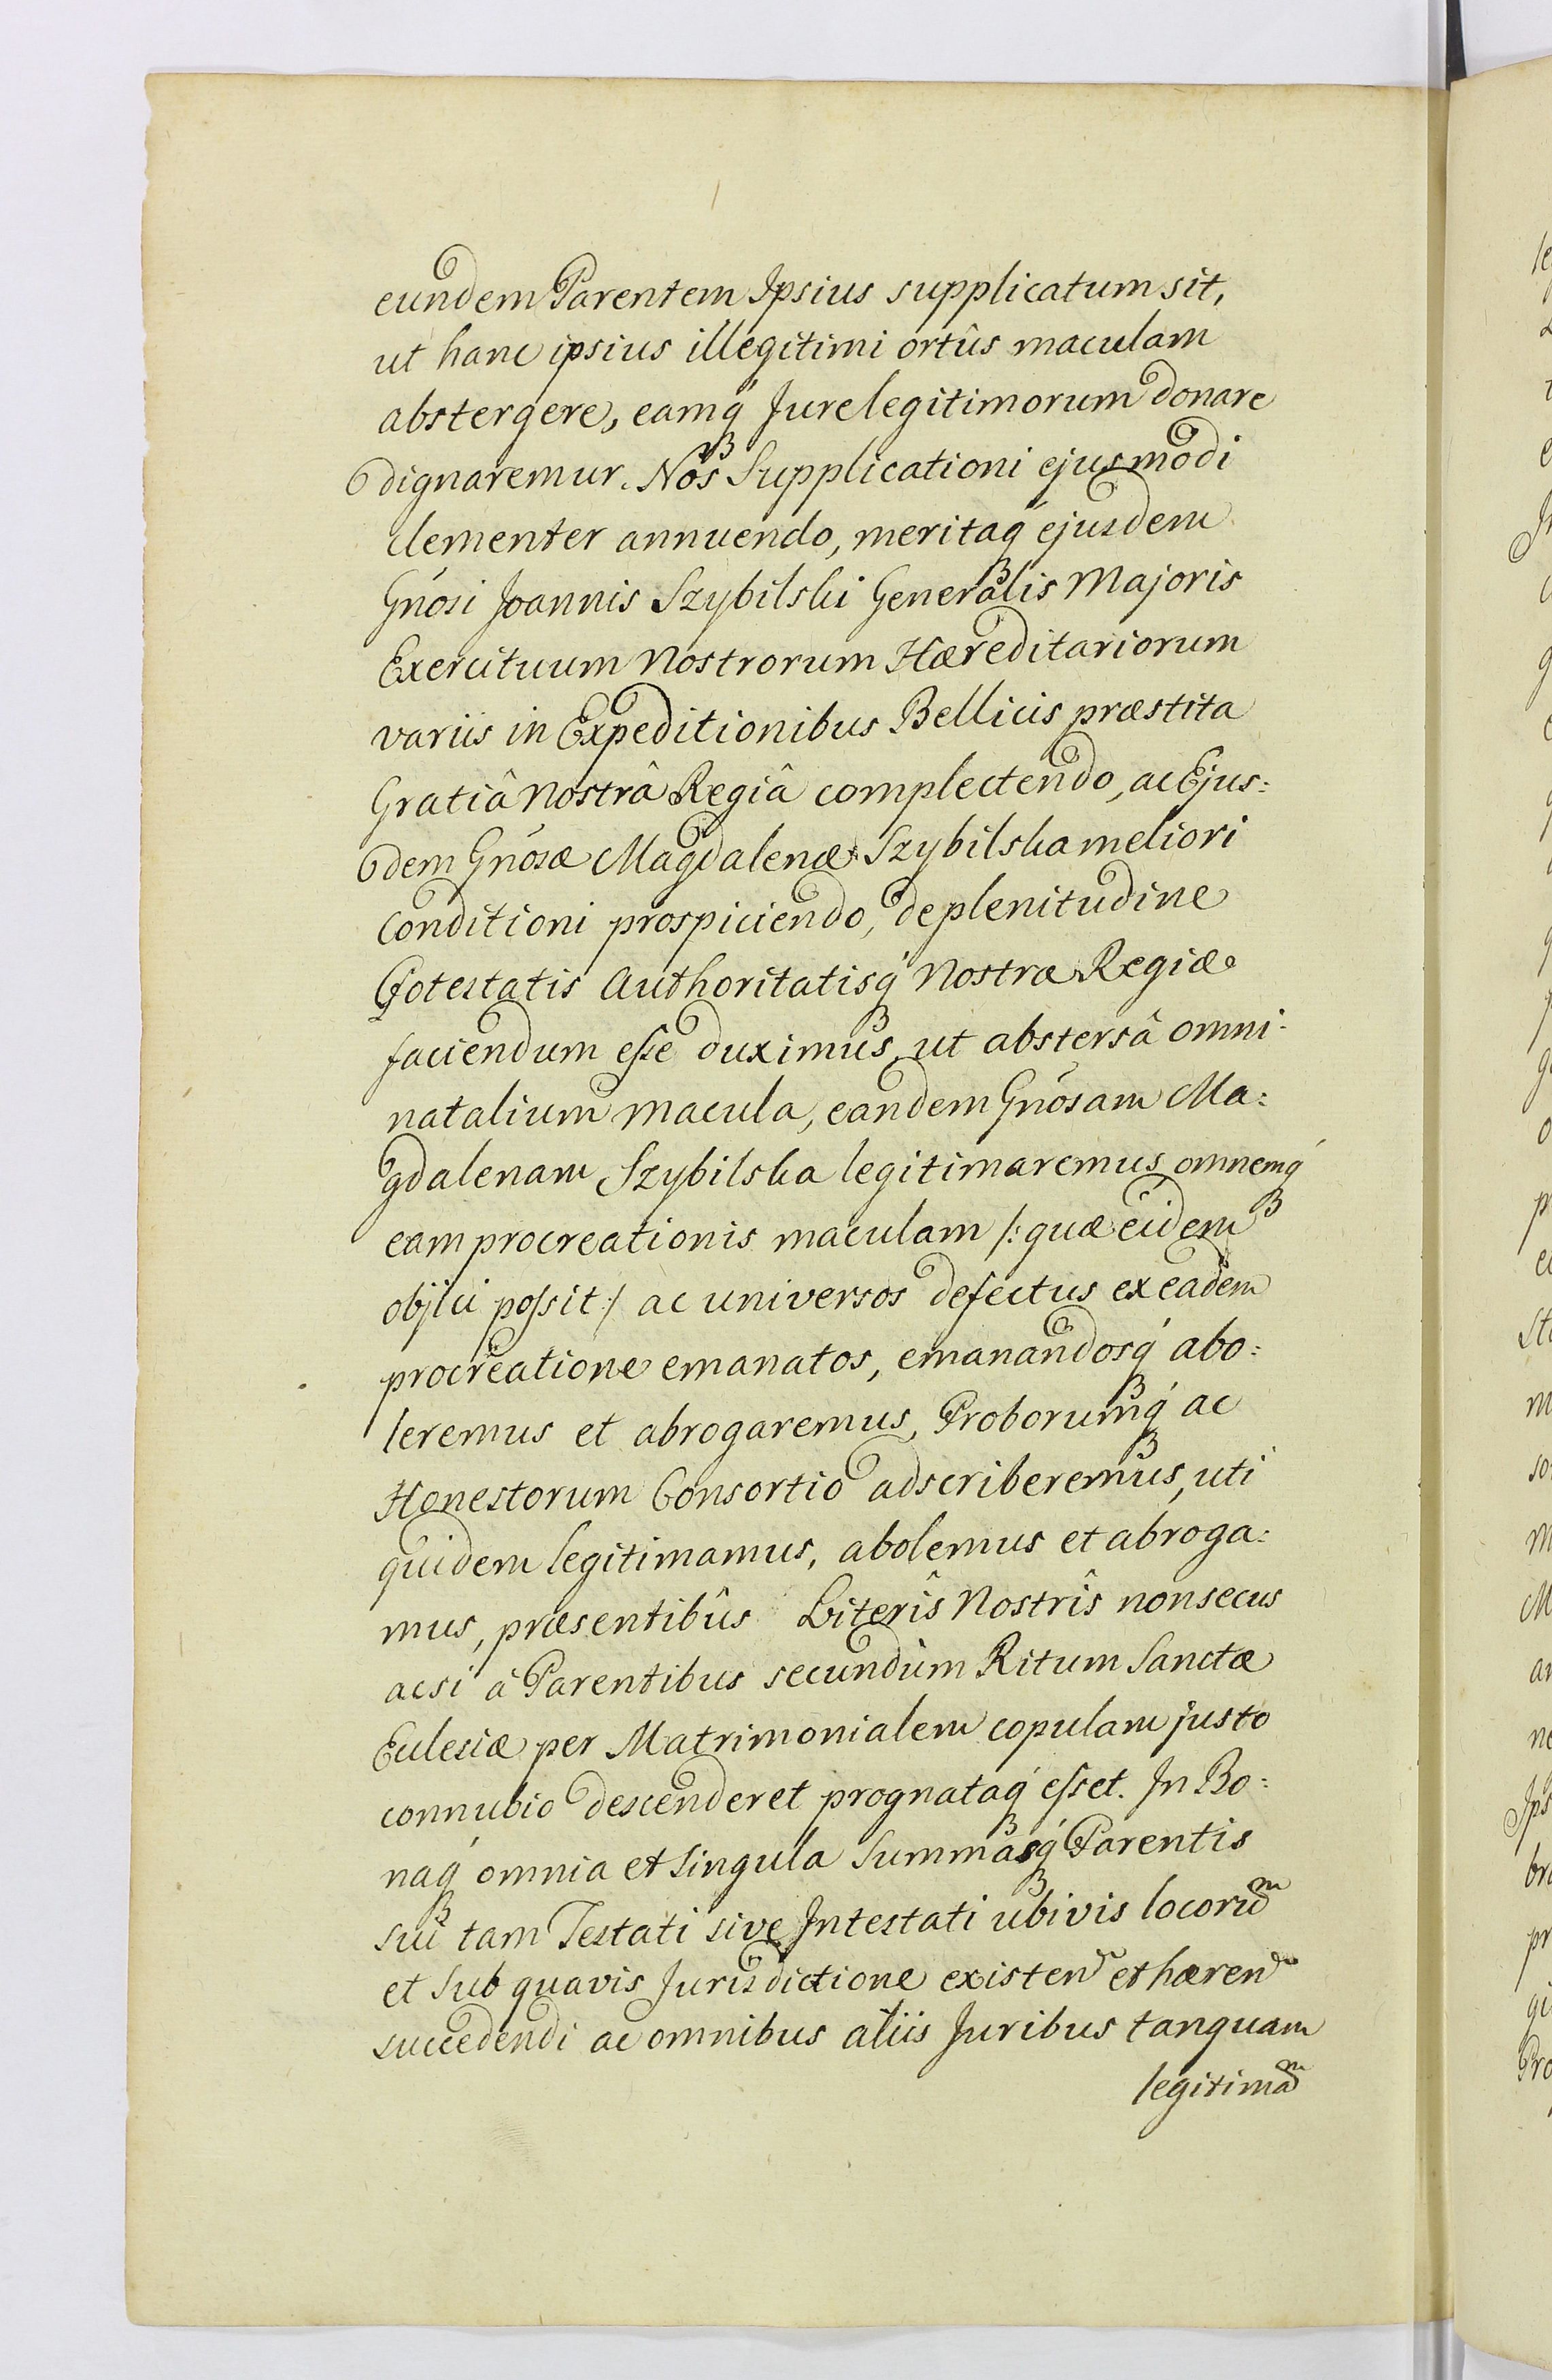 eundem Parentem Ipsius supplicatum sit,
ut hanc ipsius illegitimi ortûs maculam
abstergere, eamq́ Jure legitimorum donare
dignaremur. Nos Supplicationi ejusmodi
clementer annuendo, meritaq́ ejusdem
Gńosi Joannis Szybilski Generalis Majoris
Exercituum Nostrorum Hæreditariorum
variis in Expeditionibus Bellicis præstita
Gratiâ Nostrâ Regiâ complectendo, ac Ejus:
dem Gńosæ Magdalenæ Szybilska meliori
Conditioni prospiciendo, de plenitudine
Potestatis Authoritatisq́ Nostræ Regiæ
faciendum eſse duximus, ut abstersâ omni
natalium macula, eandem Gńosam Ma:
gdalenam Szybilska legitimaremus, omnemq́
eam procreationis maculam /: quæ eidem
objici poſsit :/ ac universos defectus ex eadem
procreatione emanatos, emanandosq́ abo:
leremus et abrogaremus, Proborumq́ ac
Honestorum Consortio adscriberemus, uti
quidem legitimamus, abolemus et abroga:
mus, præsentibûs Literîs Nostrîs non secus
ac si à Parentibus secundùm Ritum Sanctæ
Eclesiæ per Matrimonialem copulam justo
connubio descenderet prognataq́ eſset. In Bo:
naq́ omnia et singula Summasq́ Parentis
sui tam Testati sive Intestati ubivis locorum
et sub quavis Jurisdictione existen et hæren
succedendi ac omnibus aliis Juribus tanquam
legitimam